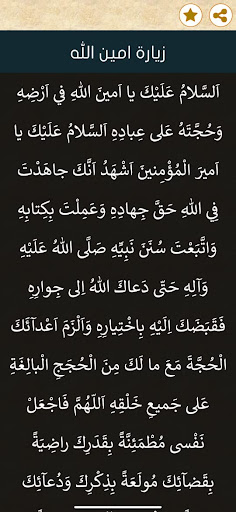 زيارة امين الله
اَلسَّلامُ عَلَيْكَ يا اَمينَ اللهِ في اَرْضِهِ
وَحُجَّتَهُ عَلى عِبادِهِ اَلسَّلامُ عَلَيْكَ يا
اَميرَ الْمُؤْمِنينَ اَشْهَدُ اَنَّكَ جاهَدْتَ
فِي اللهِ حَقَّ جِهادِهِ وَعَمِلْتَ بِكِتابِهِ
وَاتَّبَعْتَ سُنَنَ نَبِيِّهِ صَلَّى اللهُ عَلَيْهِ
وَآلِهِ حَتّى دَعاكَ اللهُ اِلى جِوارِهِ
فَقَبَضَكَ اِلَيْهِ بِاخْتِيارِهِ وَاَلْزَمَ اَعْدآئَكَ
الْحُجَّةَ مَعَ ما لَكَ مِنَ الْحُجَجِ الْبالِغَةِ
عَلى جَميعِ خَلْقِهِ اَللّهُمَّ فَاجْعَلْ
نَفْسى مُطْمَئِنَّةً بِقَدَرِكَ راضِيَةً
بِقَضآئِكَ مُولَعَةً بِذِكْرِكَ وَدُعآئِكَ